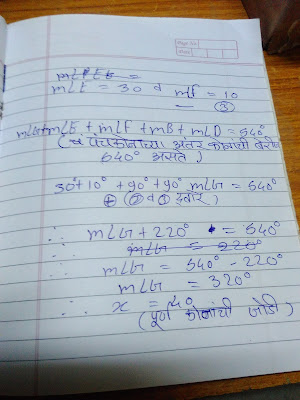 m∠E = 30 व m∠F = 10
— ③
m∠G+m∠E + m∠F + mB + m∠D = 540°
(पंचकोनाच्या अंतर कोनांची बेरीज
540° असते)
30°+10° +90°+90° m∠G = 540°
(② व ① नुसार)
∴ m∠G + 220° = 540°
m∠G = 220°
∴ m∠G = 540° - 220°
∴ m∠G = 320°
∴ x = 40
(पूर्ण कोनांची जोडी)